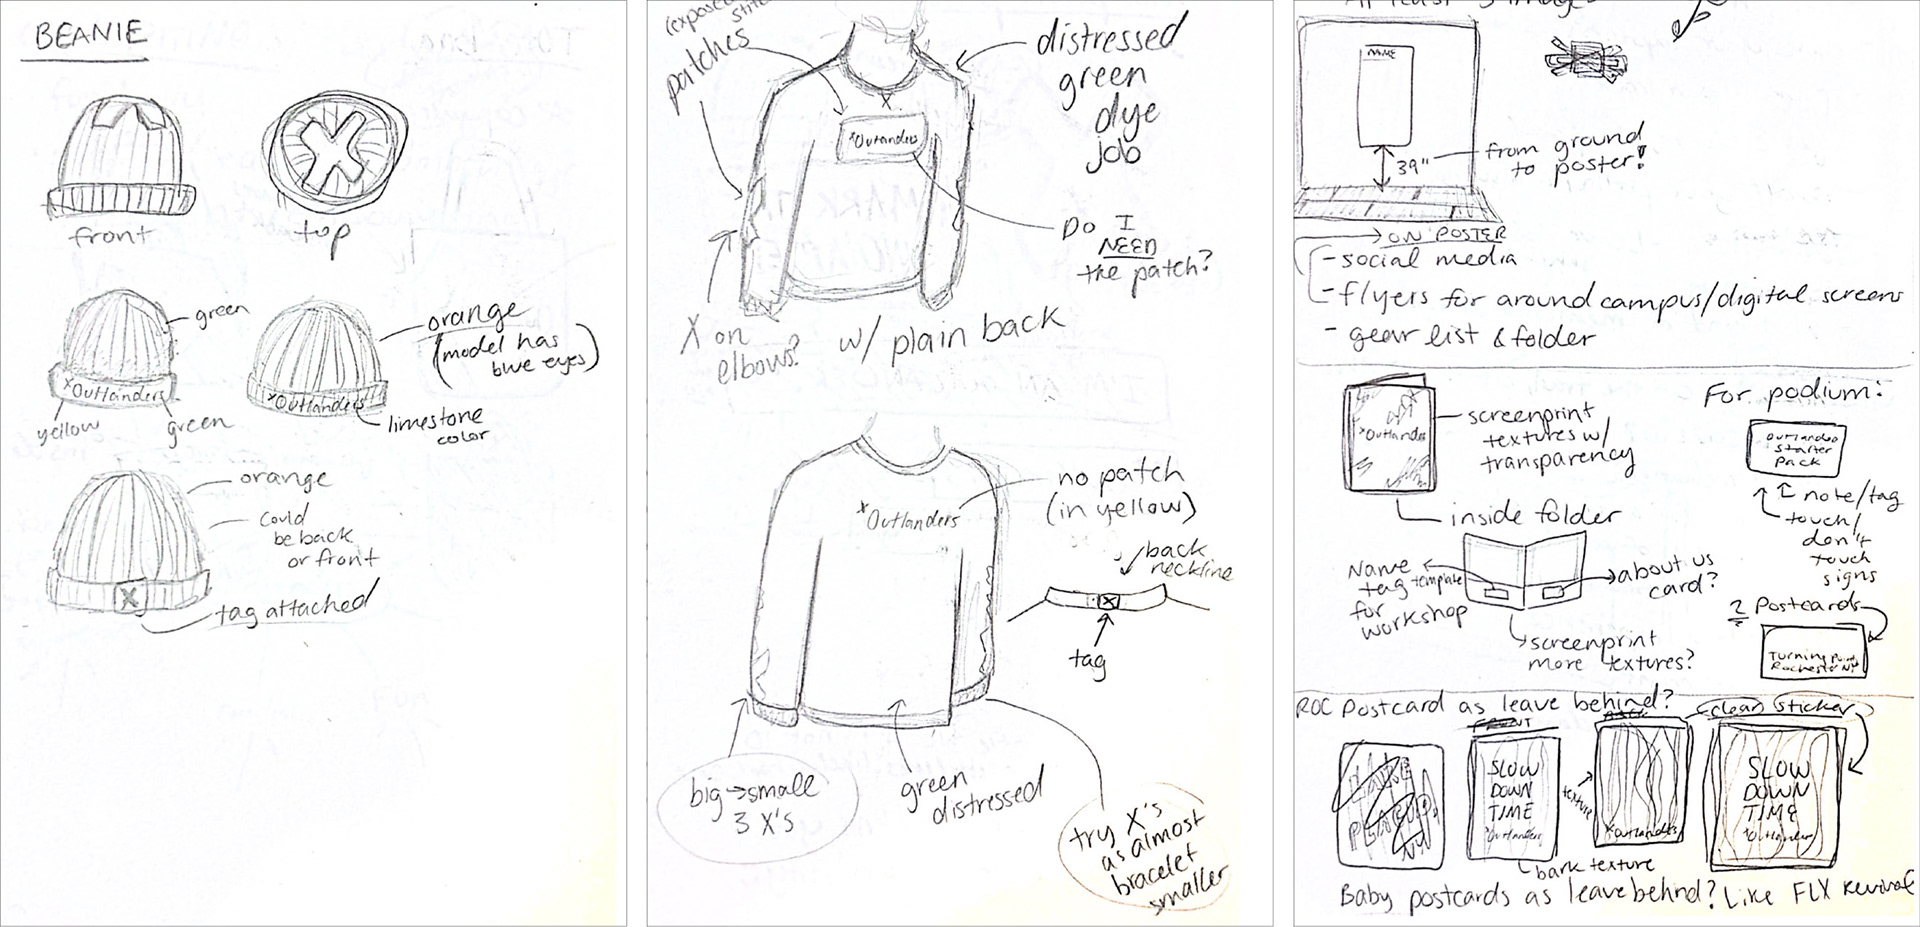 BEANIE
front
top
green
xOutlanders
yellow
green
orange
(model has
blue eyes)
xOutlanders
limestone
color
orange
could
be back
or front
X
tag attached
patches
distressed
green
dye
job
X
xOutlanders
Do I
NEED
the patch?
X on
elbows?
w/ plain back
no patch
(in yellow)
xOutlanders
back
neckline
X
tag
big→small
3 X's
green
distressed
try X's
as almost
bracelet
smaller
NAME
39"
from ground
to poster!
ON POSTER
- social media
- flyers for around campus/digital screens
- gear list & folder
xOutlanders
screenprint
textures w/
transparency
For podium:
Outlanders
Starter
Pack
note/tag
touch/
don't
touch
signs
inside folder
Name
tag template
for
workshop
about us
card?
screenprint
more textures?
2 Postcards
Turning Point
Rochester NY
ROC Postcard as leave behind?
clear sticker
FRONT
SLOW
DOWN
TIME
xOutlanders
texture
xOutlanders
SLOW
DOWN
TIME
xOutlanders
bark texture
Baby postcards as leave behind? Like FLX